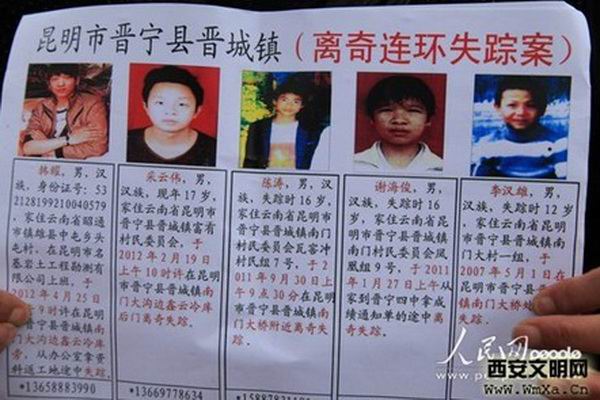 昆明市晋宁县晋城镇（离奇连环失踪案）
韩耀，男，汉
族，身份证号：53
2128199210040579
，家住云南省昭通
市镇雄县中屯乡头
屯村。在昆明市名
基岩土工程勘测有
限公司上班，于
2012年4月25日
时许在昆明
市晋宁县晋城镇南
门大沟边鑫云冷库
旁，从办公室拿资
料返工地途中失踪。
*13658883990
采云伟，男，
汉族，现年17岁，
家住云南省昆明市
晋宁县晋城镇富有
村民委员会，于
2012年2月19日
上午10时许在昆明
市晋宁县晋城镇南
门大沟边鑫云冷库
后门离奇失踪。
*13669778634
陈涛，男，汉
族，失踪时16岁，
家住云南省昆明市
晋宁县晋城镇南门
村民委员会瓦窑冲
村民组7号，于2
011年9月30日上
午9点30分在昆明
市晋宁县晋城镇南
门大桥附近离奇失
踪。
谢海俊，男，
汉族，失踪时16
岁，家住云南省昆
明市晋宁县晋城镇
南门村民委员会凤
凰组9号，于2011
年1月27日上午从
家到晋宁四中拿成
绩通知单的途中离
奇失踪。
李汉雄，男，
汉族，失踪时12岁，
家住云南省昆明市
晋宁县晋城镇南门
村民委员会南
门大村一组，于
2007年5月1日在昆
明市晋宁县晋城镇
南门大桥处
失踪。
人民网
people
西安文明网
Www.WmXa.Cn